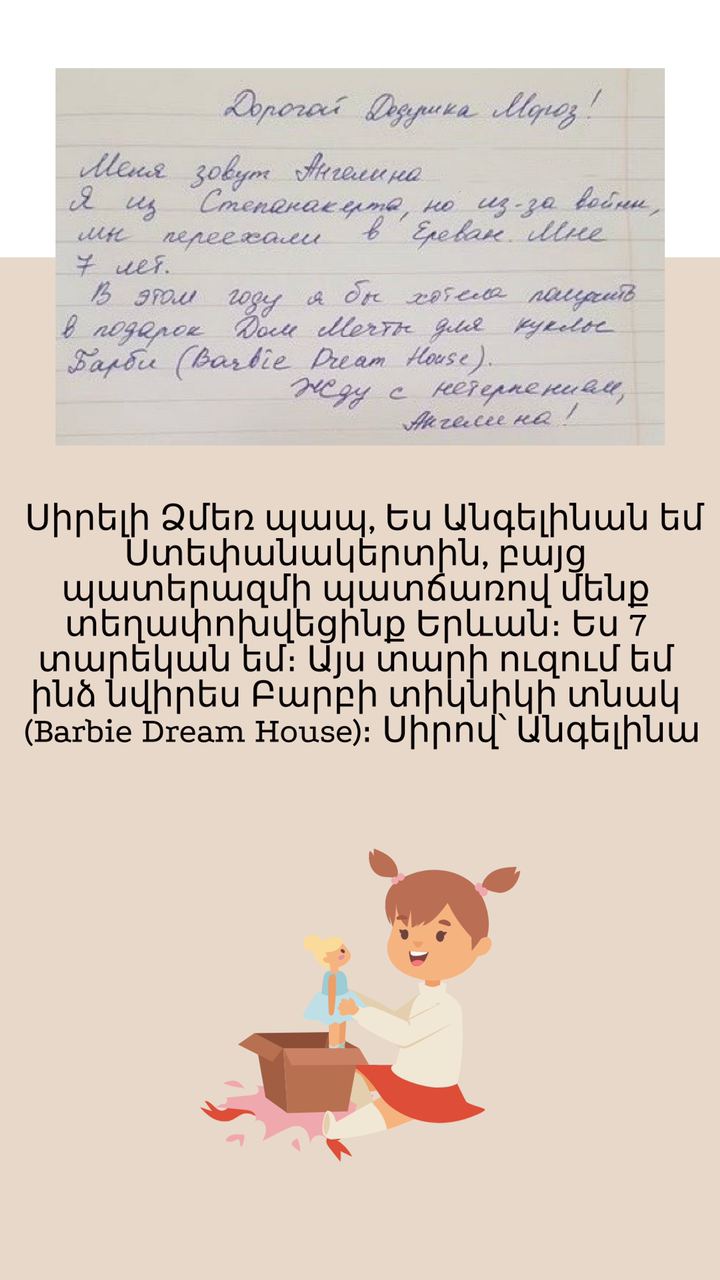 Дорогой Дедушка Мороз!
Меня зовут Ангелина
Я из Степанакерта, но из-за войны,
мы переехали в Ереван. Мне
7 лет.
В этом году я бы хотела получить
в подарок Дом Мечты для куклы
Барби (Barbie Dream House).
Жду с нетерпением,
Ангелина!
Սիրելի Ձմեռ պապ, Ես Անգելինան եմ
Ստեփանակերտին, բայց
պատերազմի պատճառով մենք
տեղափոխվեցինք Երևան։ Ես 7
տարեկան եմ։ Այս տարի ուզում եմ
ինձ նվիրես Բարբի տիկնիկի տնակ
(Barbie Dream House)։ Սիրով՝ Անգելինա